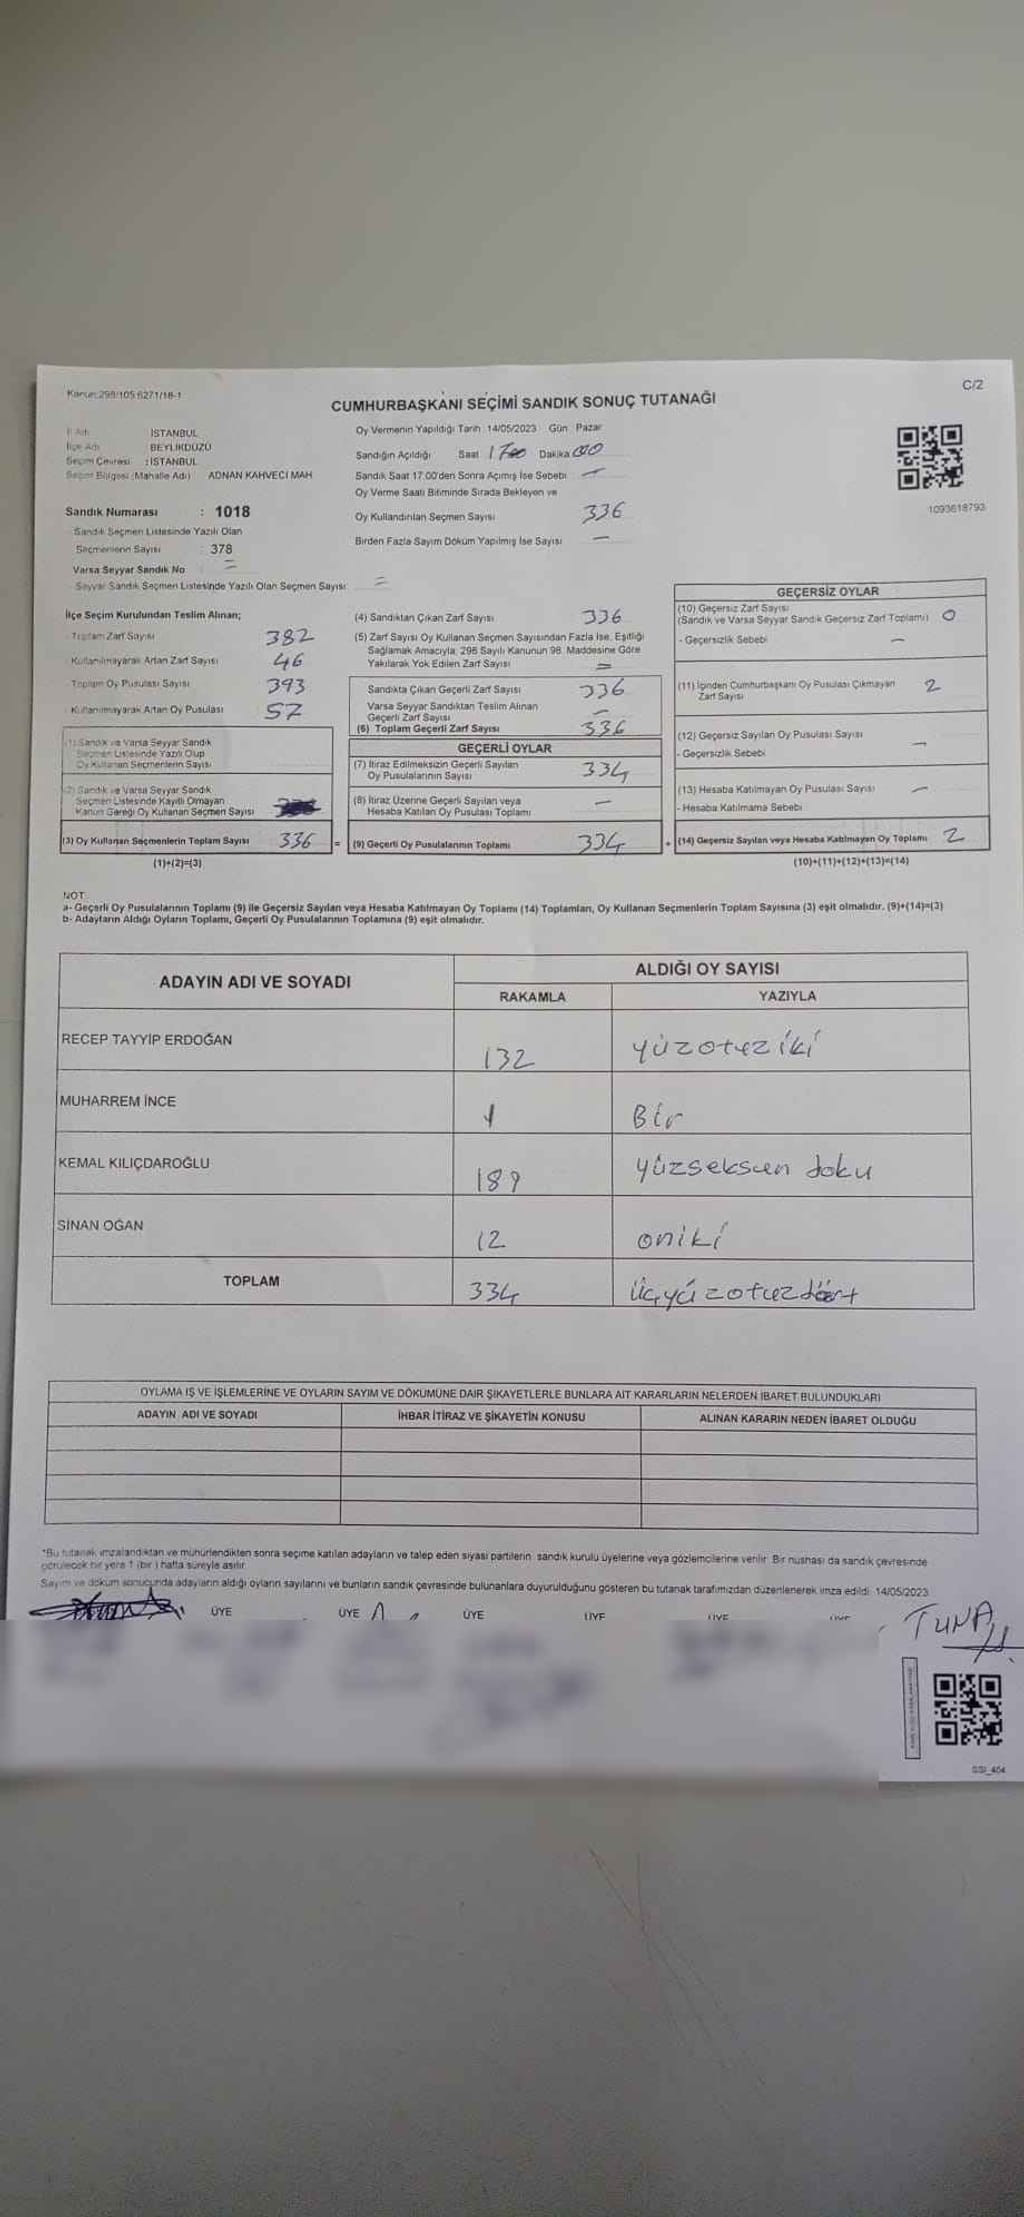 Kanun:298/105 6271/18-1
C/2
CUMHURBAŞKANI SEÇİMİ SANDIK SONUÇ TUTANAĞI
İl Adı İSTANBUL
İlçe Adı BEYLİKDÜZÜ
Seçim Çevresi : İSTANBUL
Seçim Bölgesi (Mahalle Adı) ADNAN KAHVECİ MAH
Sandık Numarası : 1018
Sandık Seçmen Listesinde Yazılı Olan
Seçmenlerin Sayısı : 378
Varsa Seyyar Sandık No =
Seyyar Sandık Seçmen Listesinde Yazılı Olan Seçmen Sayısı =
Oy Vermenin Yapıldığı Tarih : 14/05/2023 Gün Pazar
Sandığın Açıldığı Saat 1700 Dakika 00
Sandık Saat 17.00'den Sonra Açımış İse Sebebi —
Oy Verme Saati Bitiminde Sırada Bekleyen ve
Oy Kullandırılan Seçmen Sayısı 336
Birden Fazla Sayım Döküm Yapılmış İse Sayısı —
1093618793
İlçe Seçim Kurulundan Teslim Alınan;
Toplam Zarf Sayısı 382
Kullanılmayarak Artan Zarf Sayısı 46
Toplam Oy Pusulası Sayısı 393
Kullanılmayarak Artan Oy Pusulası 57
(1) Sandık ve Varsa Seyyar Sandık
Seçmen Listesinde Yazılı Olup
Oy Kullanan Seçmenlerin Sayısı
(2) Sandık ve Varsa Seyyar Sandık
Seçmen Listesinde Kayıtlı Olmayan
Kanun Gereği Oy Kullanan Seçmen Sayısı
(3) Oy Kullanan Seçmenlerin Toplam Sayısı 336 =
(1)+(2)=(3)
(4) Sandıktan Çıkan Zarf Sayısı 336
(5) Zarf Sayısı Oy Kullanan Seçmen Sayısından Fazla İse, Eşitliği
Sağlamak Amacıyla, 298 Sayılı Kanunun 98. Maddesine Göre
Yakılarak Yok Edilen Zarf Sayısı =
Sandıkta Çıkan Geçerli Zarf Sayısı 336
Varsa Seyyar Sandıktan Teslim Alınan
Geçerli Zarf Sayısı —
(6) Toplam Geçerli Zarf Sayısı 336
GEÇERLİ OYLAR
(7) İtiraz Edilmeksizin Geçerli Sayılan
Oy Pusulalarının Sayısı 334
(8) İtiraz Üzerine Geçerli Sayılan veya
Hesaba Katılan Oy Pusulası Toplamı —
(9) Geçerli Oy Pusulalarının Toplamı 334 +
GEÇERSİZ OYLAR
(10) Geçersiz Zarf Sayısı
(Sandık ve Varsa Seyyar Sandık Geçersiz Zarf Toplamı) 0
- Geçersizlik Sebebi —
(11) İçinden Cumhurbaşkanı Oy Pusulası Çıkmayan
Zarf Sayısı 2
(12) Geçersiz Sayılan Oy Pusulası Sayısı —
- Geçersizlik Sebebi
(13) Hesaba Katılmayan Oy Pusulası Sayısı —
- Hesaba Katılmama Sebebi
(14) Geçersiz Sayılan veya Hesaba Katılmayan Oy Toplamı 2
(10)+(11)+(12)+(13)=(14)
NOT:
a- Geçerli Oy Pusulalarının Toplamı (9) ile Geçersiz Sayılan veya Hesaba Katılmayan Oy Toplamı (14) Toplamları, Oy Kullanan Seçmenlerin Toplam Sayısına (3) eşit olmalıdır. (9)+(14)=(3)
b- Adayların Aldığı Oyların Toplamı, Geçerli Oy Pusulalarının Toplamına (9) eşit olmalıdır.
ADAYIN ADI VE SOYADI ALDIĞI OY SAYISI
RAKAMLA YAZIYLA
RECEP TAYYİP ERDOĞAN 132 yüzotuziki
MUHARREM İNCE 1 Bir
KEMAL KILIÇDAROĞLU 189 yüzseksen doku
SİNAN OĞAN 12 oniki
TOPLAM 334 üçyüzotuzdört
OYLAMA İŞ VE İŞLEMLERİNE VE OYLARIN SAYIM VE DÖKÜMÜNE DAİR ŞİKAYETLERLE BUNLARA AİT KARARLARIN NELERDEN İBARET BULUNDUKLARI
ADAYIN ADI VE SOYADI İHBAR İTİRAZ VE ŞİKAYETİN KONUSU ALINAN KARARIN NEDEN İBARET OLDUĞU
*Bu tutanak imzalandıktan ve mühürlendikten sonra seçime katılan adayların ve talep eden siyasi partilerin sandık kurulu üyelerine veya gözlemcilerine verilir. Bir nüshası da sandık çevresinde
görülecek bir yere 1 (bir) hafta süreyle asılır.
Sayım ve döküm sonucunda adayların aldığı oyların sayılarını ve bunların sandık çevresinde bulunanlara duyurulduğunu gösteren bu tutanak tarafımızdan düzenlenerek imza edildi. 14/05/2023
ÜYE ÜYE ÜYE ÜYE ÜYE ÜYE
TUNA
SSI_404